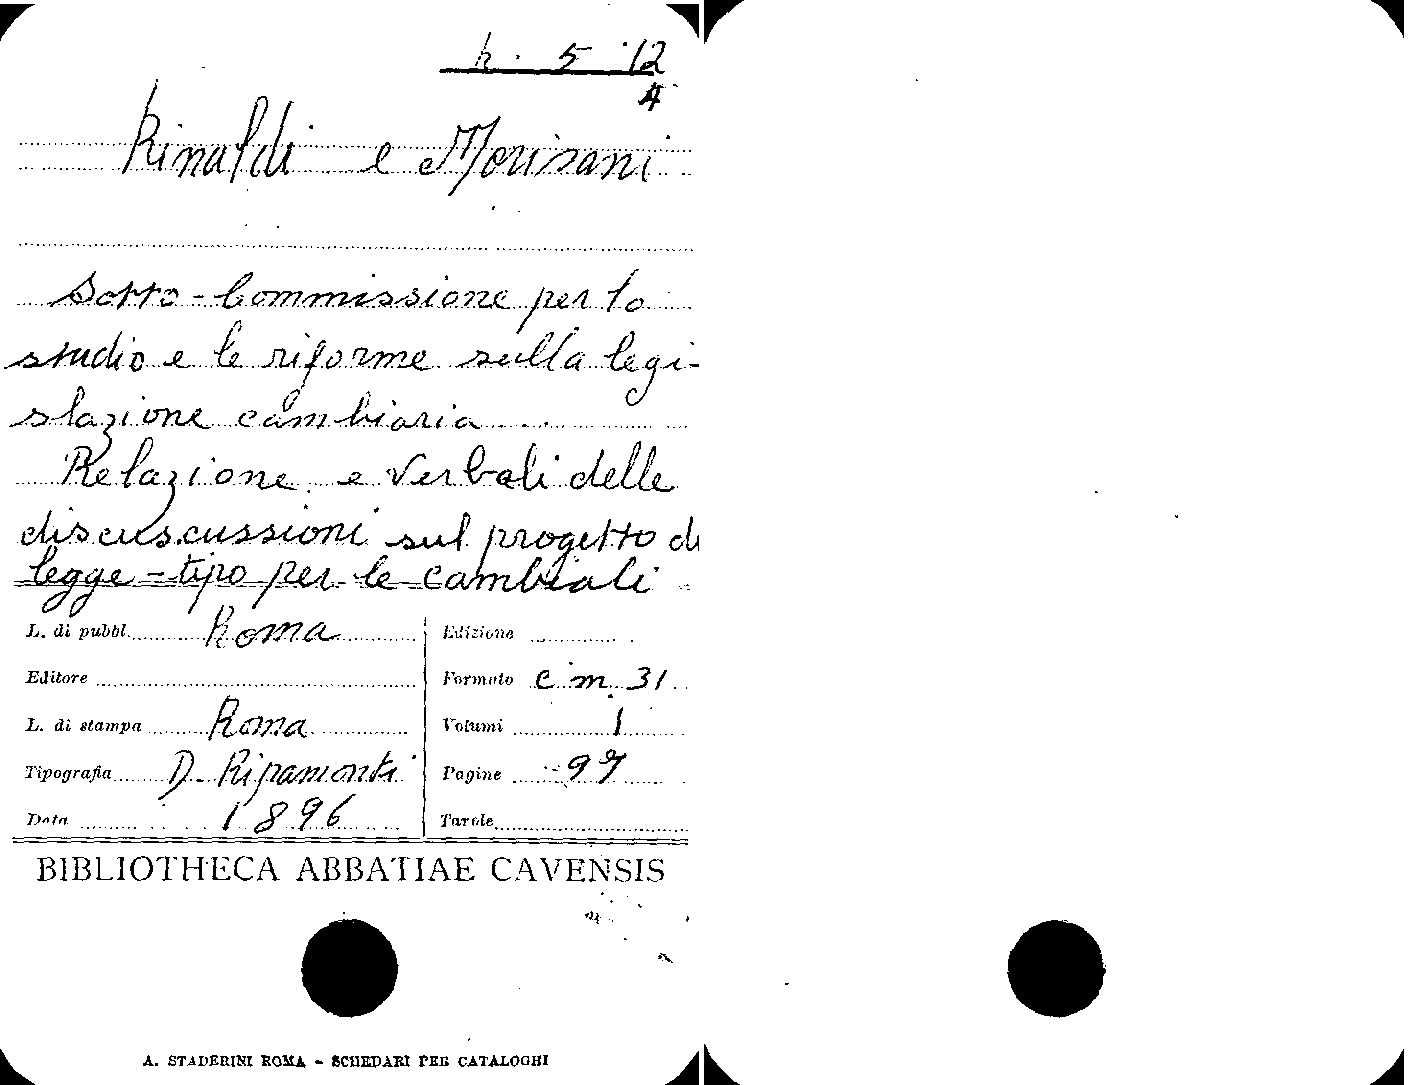 h. 5 12
4
Rinaldi e Morisani
Sotto-Commissione per lo
studio e le riforme sulla legi-
slazione cambiaria
Relazione e Verbali delle
discuscussioni sul progetto di
legge-tipo per le cambiali
L. di pubbl. Roma
Edizione
Editore
Formato cm. 31
L. di stampa Roma
Volumi 1
Tipografia D. Ripamonti
Pagine 97
Data 1896
Tavole
BIBLIOTHECA ABBATIAE CAVENSIS
A. STADERINI ROMA - SCHEDARI PER CATALOGHI